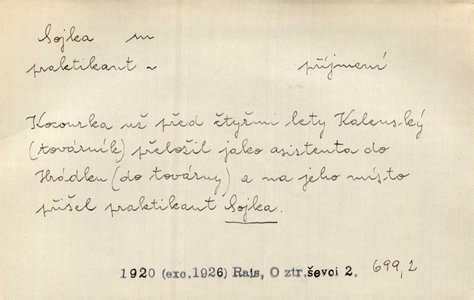 Sojka m
praktikant ~ příjmení
Kocourka už před čtyřmi lety Kalenský
(továrník) přeložil jako asistenta do
Hrádku (do továrny) a na jeho místo
přišel praktikant Sojka.
1920 (exc.1926) Rais, O ztr. ševci 2. 699,2